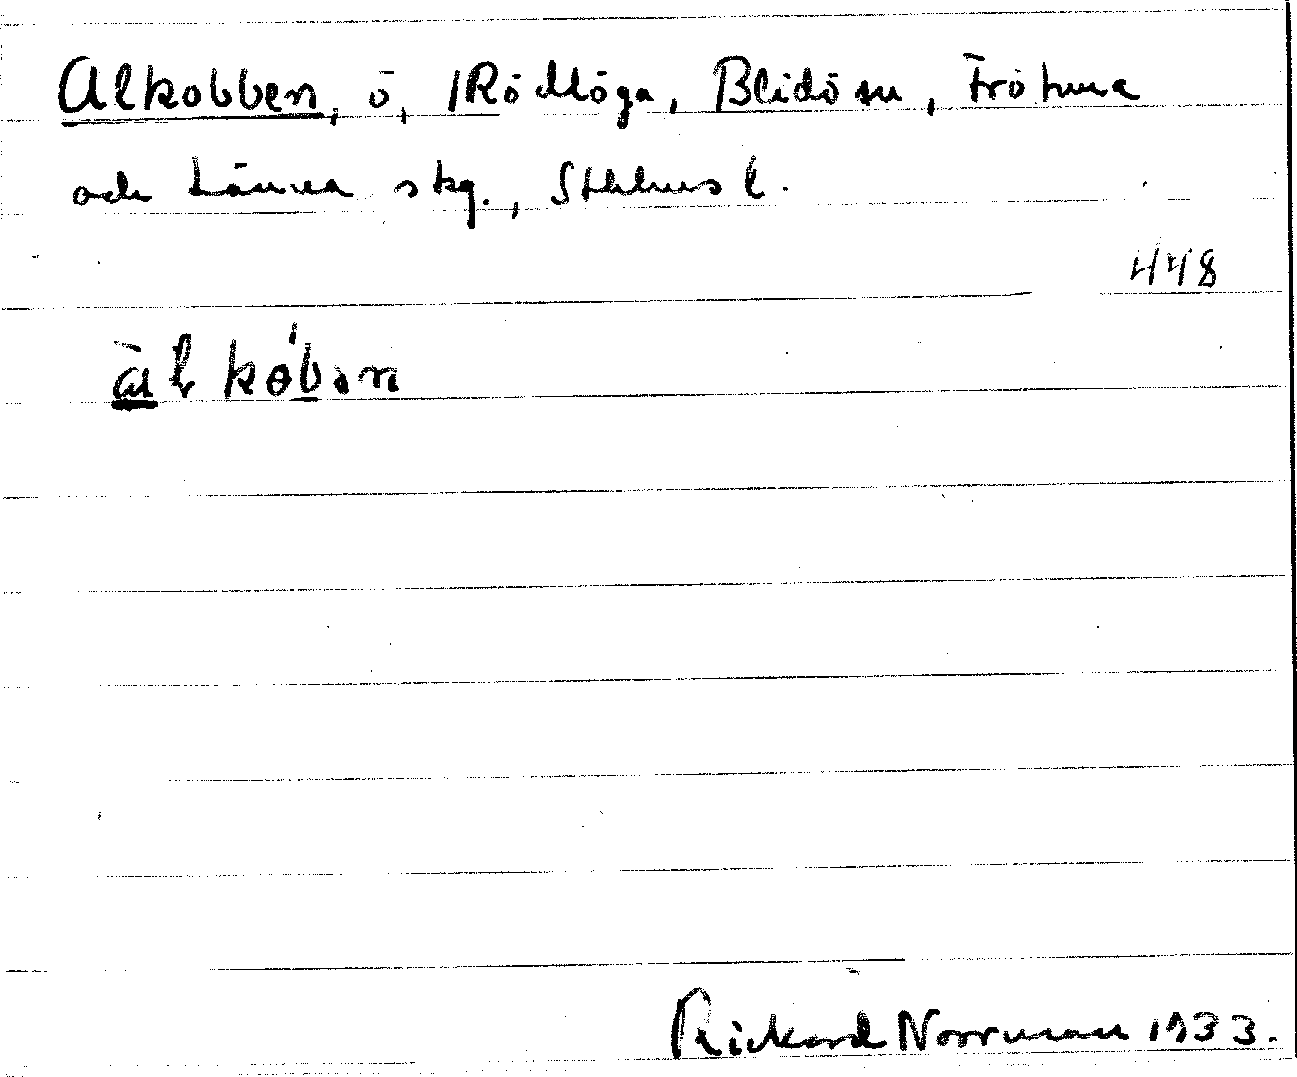 Alkobben, ö, Rödlöga, Blidö sn, Frötuna
och Länna skg., Sthlms l.
448
Rickard Norrman 1933.